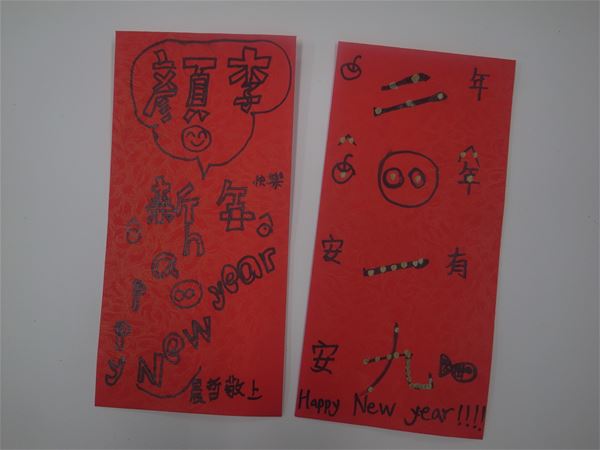 顏李
新年快樂
happy
New year
晨哲敬上
年年有
二〇一九
安安
Happy New year!!!!